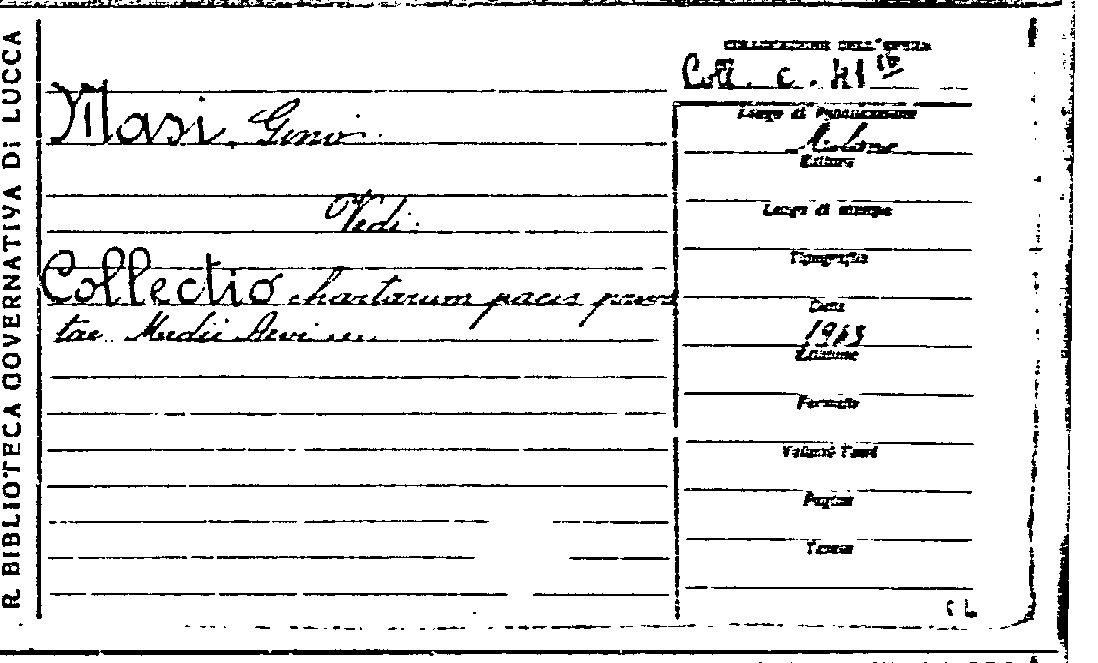 R. BIBLIOTECA GOVERNATIVA DI LUCCA
COLLOCAZIONE DELL'OPERA
Coll. c. 41 IV
Masi, Gino
Luogo di Pubblicazione
Milano
Editore
Vedi:
Luogo di stampa
Tipografia
Collectio chartarum pacis priva
tae Medii Aevi
Data
1943
Edizione
Formato
Volumi Tomi
Pagine
Tavole